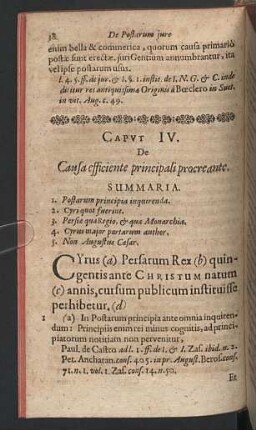 38 De Postarum juro
enim bella & commercia, quorum causa primariò
postæ sunt erectæ, jurí Gentium annumbrantur, ita
vel ipse postarum usus.
l. 4. 5. ff. de jur. & l. §. 1. instit. de I. N. G. & C. inde
ducitur res antiquissima Originis à Bœclero in Suet.
in vit. Aug. c. 49.
CAPVT IV.
De
Causa efficiente principali procreante.
SUMMARIA.
1. Postarum principia inquirenda.
2. Cyri quot fuerint.
3. Persia qua Regio, & qua Monarchia.
4. Cyrus major postarum author.
5. Non Augustus Cæsar.
CYrus (a) Persarum Rex (b) quin-
gentis ante CHRISTUM natum
(c) annis, cursum publicum instituisse
perhibetur. (d)
1 (a) In Postarum principia ante omnia inquiren-
dum: Principiis enim rei minus cognitis, ad princi-
piatorum notitiam non pervenitur,
Paul. de Castro ad l. 1. ff. de j. & l. Zas. ibid. n. 2.
Pet. Ancharan. cons. 405. in pr. August. Beros. cons.
71. n. 1. vol. 1. Zas. cons. 14. n. 50.
Et